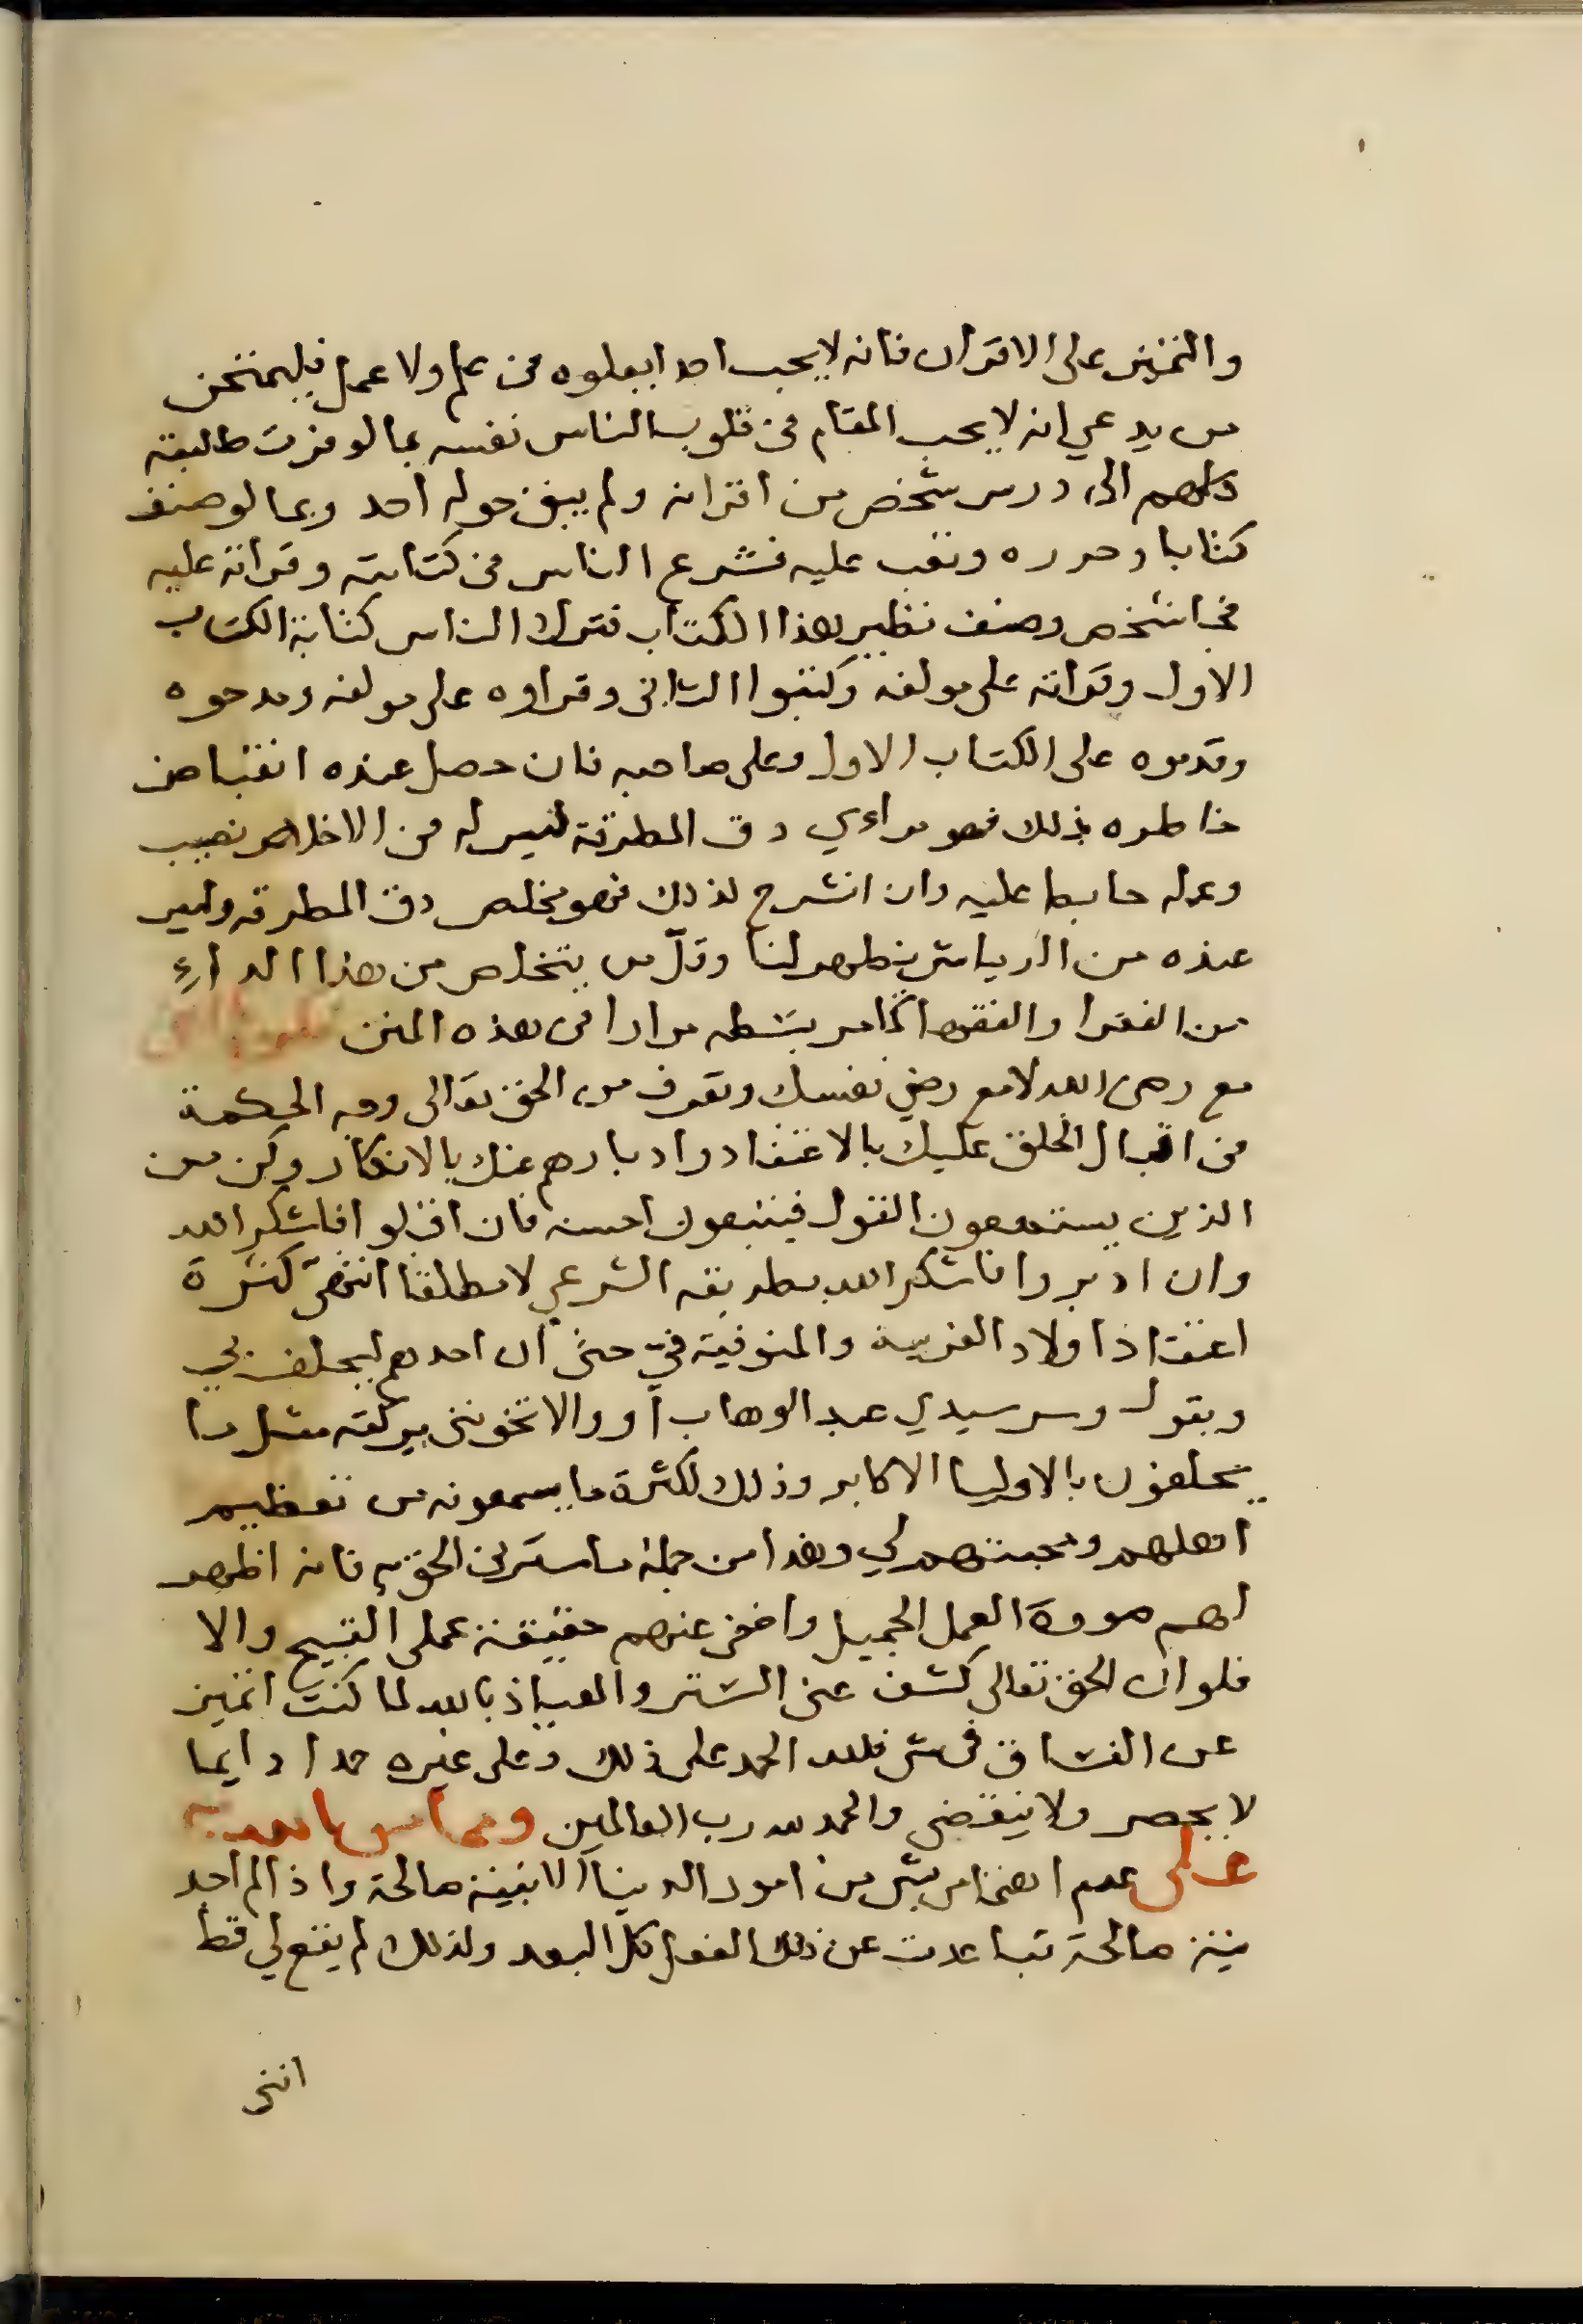 والتميز على الاقران فانه لا يحب احدا يعلوه في علم ولا عمل فليمتحن
من يدعي انه لا يحب المقام في قلوب الناس نفسه بما لو فرت طلبته
كلهم الى درس شخص من اقرانه ولم يبق حوله احد وبما لو صنف
كتابا وحرره وتعب عليه فشرع الناس في كتابته وقراته عليه
فجا شخص وصنف نظير هذا الكتاب فترك الناس كتابة الكتاب
الاول وقراته على مولفه وكتبوا الثاني وقراوه على مولفه ومدحوه
وقدموه على الكتاب الاول وعلى صاحبه فان حصل عنده انقباض
خاطره بذلك فهو مراءي دق المطرقة ليس له في الاخلاص نصيب
وعمله حابط عليه وان انشرح لذلك فهو مخلص دق المطرقه وليس
عنده من الرياشي يظهر لنا وقلّ من يتخلص من هذا الداءِ
من الفقرا والفقها كما مر بسطه مرارا في هذه المنن
مع رضى الله لا مع رضي نفسك وتعرف من الحق تعالى وجه الحكمة
في اقبال الخلق عليك بالاعتقاد وادبارهم عنك بالانكار وكن من
الذين يستمعون القول فيتبعون احسنه فان اقبلوا فاشكر الله
وان ادبروا فاشكر الله بطريقه الشرعي لا مطلقا انتهى كثرة
اعتقاد اولاد الغربية والمنوفية فيّ حتى ان احدهم ليحلف بي
ويقول وسر سيدي عبد الوهاب او والا تخونني بركته مثل ما
يحلفون بالاوليا الاكابر وذلك لكثرة ما يسمعونه من تعظيم
اهلهم ومحبتهم لي وهذا من جملة ما سترني الحق به فانه اظهر
لهم صورة العمل الجميل واخفى عنهم حقيقة عملي القبيح والا
فلو ان الحق تعالى كشف عني الستر والعياذ بالله لما كنت اتميز
عن الفساق في شي فلله الحمد على ذلك وعلى غيره حمدا دايما
لا يحصر ولا ينقضي والحمد لله رب العالمين ومما من الله به
على عدم اهتمامي بشي من امور الدنيا الا بنية صالحة واذا لم اجد
نية صالحة تباعدت عن ذلك الفعل كل البعد ولذلك لم يقع لي قط
انني